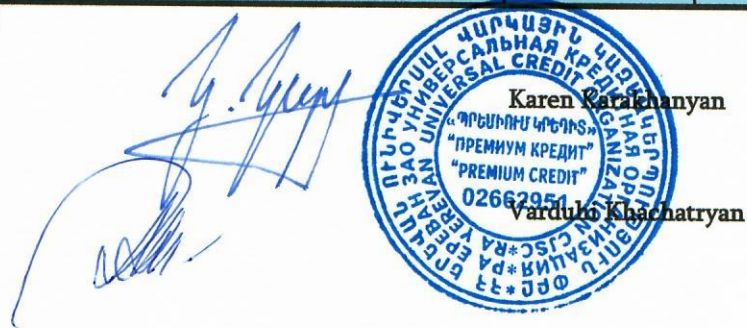 Karen Karakhanyan
Varduhi Khachatryan
ՈՒՆԻՎԵՐՍԱԼ ՎԱՐԿԱՅԻՆ ԿԱԶՄԱԿԵՐՊՈՒԹՅՈՒՆ ՓԲԸ * ՀՀ ԵՐԵՎԱՆ
ЗАО УНИВЕРСАЛЬНАЯ КРЕДИТНАЯ ОРГАНИЗАЦИЯ * РА ЕРЕВАН
UNIVERSAL CREDIT ORGANIZATION CJSC * RA YEREVAN
«ՊՐԵՄԻՈՒՄ ԿՐԵԴԻՏ»
"ПРЕМИУМ КРЕДИТ"
"PREMIUM CREDIT"
02662951